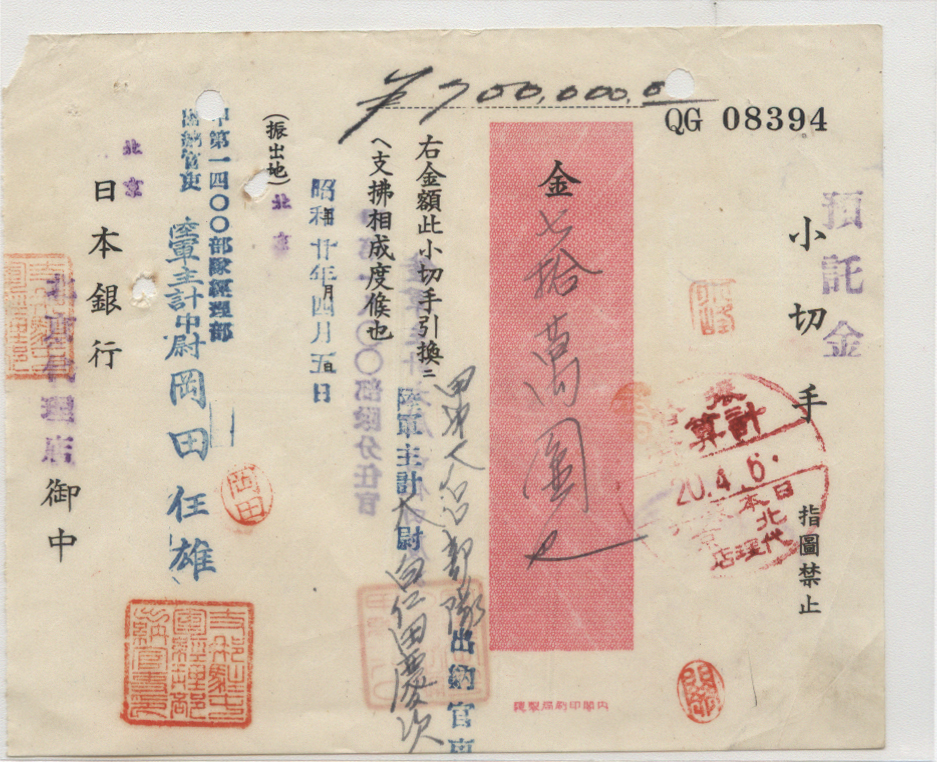 ¥700,000.0
QG 08394
預託金
小切手
指圖禁止
振
計算
20.4.6.
日本
北京代理店
金七拾萬圓也
内閣印刷局製造
右金額此小切手引換ニ
甲第一八〇〇部隊出納官吏
陸軍主計大尉 白仁田慶次
へ支拂相成度候也
部隊分任官
昭和廿年四月五日
(振出地)北京
甲第一四〇〇部隊經理部
陸軍主計中尉岡田任雄
岡田
北京
日本銀行
北京代理店
御中